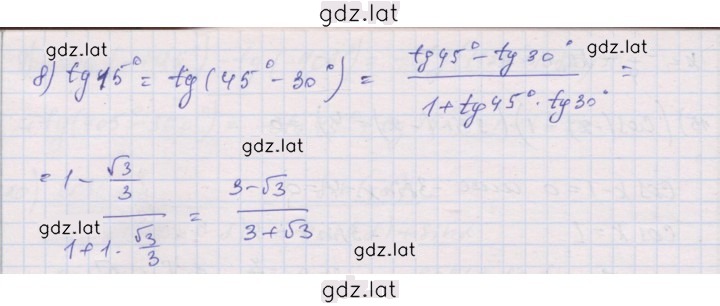 gdz.lat
gdz.lat
gdz.lat
в) tg15° = tg(45° - 30°) = (tg45° - tg30°)/(1 + tg45° · tg30°) =
gdz.lat
= (1 - √3/3)/(1 + 1 · √3/3) = (3 - √3)/(3 + √3)
gdz.lat
gdz.lat
gdz.lat